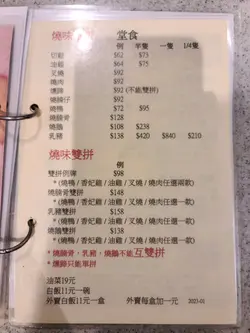 燒味 堂食
例 半隻 一隻 1/4隻
切雞 $62 $73
油雞 $64 $75
叉燒 $92
燒肉 $92
燻蹄 $92 (不能雙拼)
燒腩仔 $92
燒鴨 $72 $95
燒腩骨 $128
燒鵝 $108 $238
乳豬 $138 $420 $840 $210
燒味雙拼
例
雙拼例牌 $98
*(燒鴨/香妃雞/油雞/叉燒/燒肉任選兩款)
燒腩骨雙拼 $148
*(燒鴨/香妃雞/油雞/叉燒/燒肉任選一款)
乳豬雙拼 $158
*(燒鴨/香妃雞/油雞/叉燒/燒肉任選一款)
燒鵝雙拼 $138
*燒腩骨,乳豬,燒鵝不能互雙拼
*燻蹄只能單拼
油菜19元
白飯11元一碗
外賣白飯11元一盒 外賣每盒加一元 2023-01